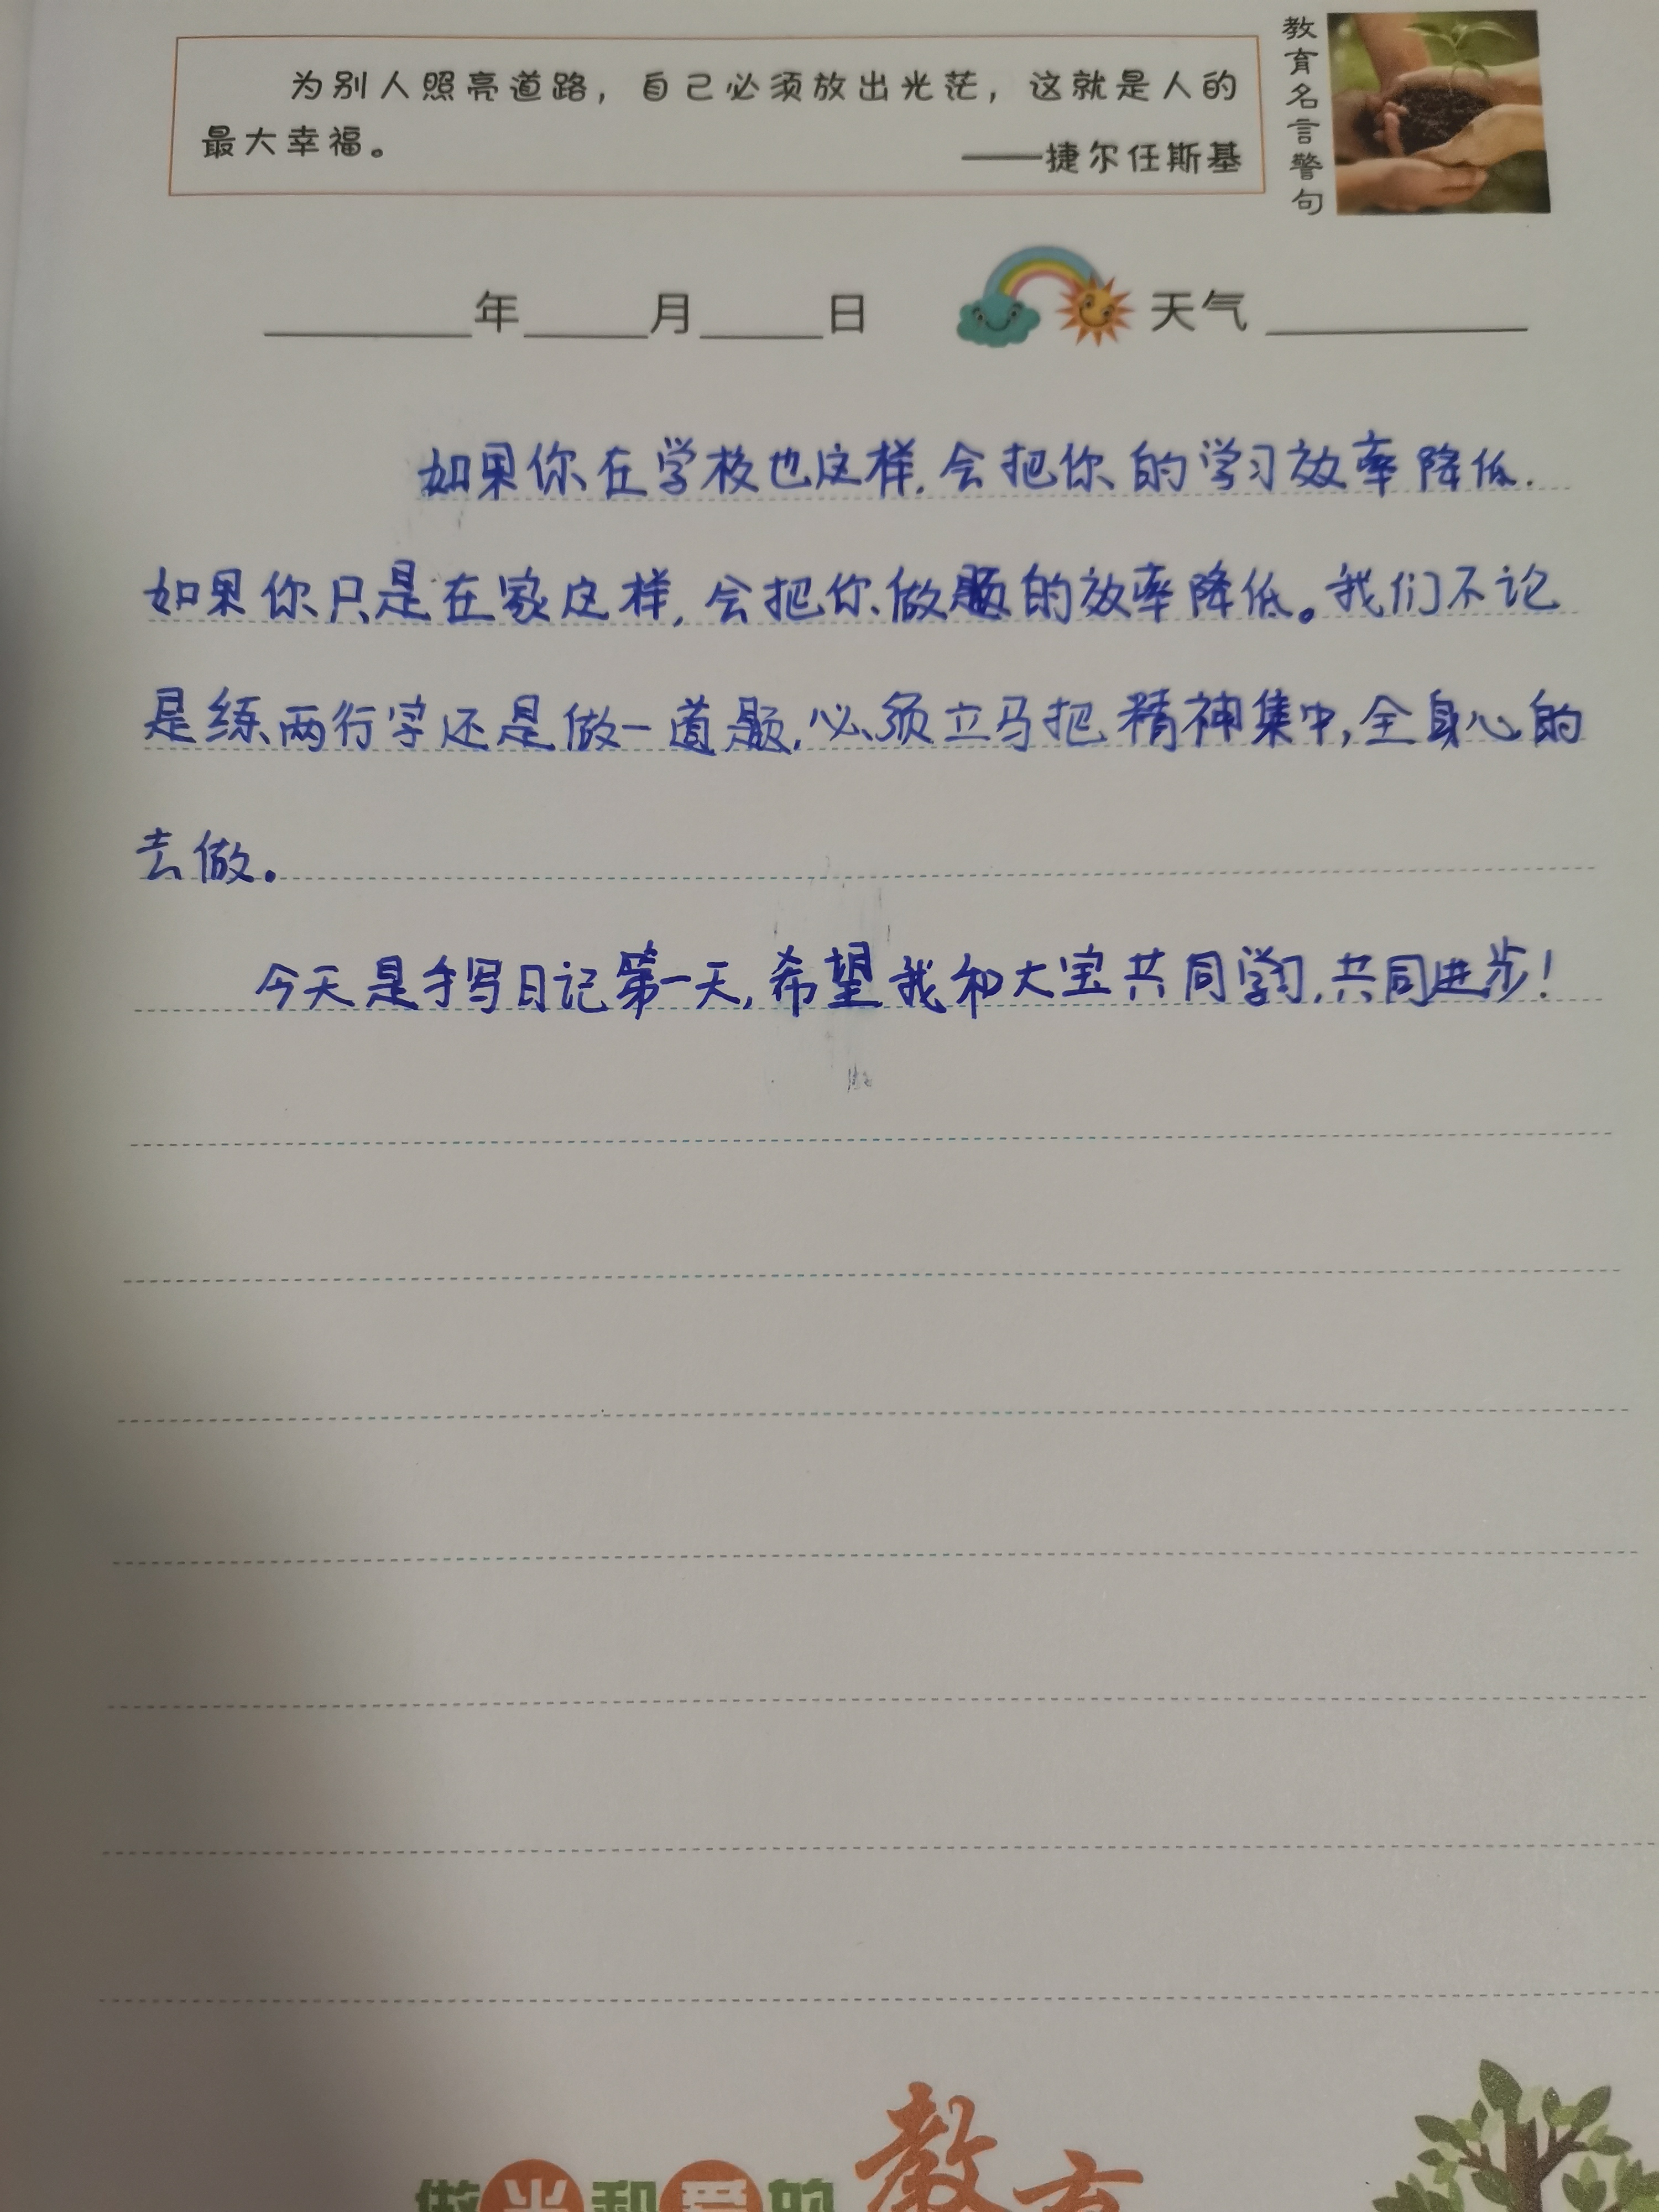 为别人照亮道路，自己必须放出光茫，这就是人的
最大幸福。
——捷尔任斯基
教育名言警句
年 月 日 天气
如果你在学校也这样,会把你的学习效率降低.
如果你只是在家这样,会把你做题的效率降低。我们不论
是练两行字还是做一道题,必须立马把精神集中,全身心的
去做。
今天是手写日记第一天,希望我和大宝共同学习,共同进步!
做光和爱的教育